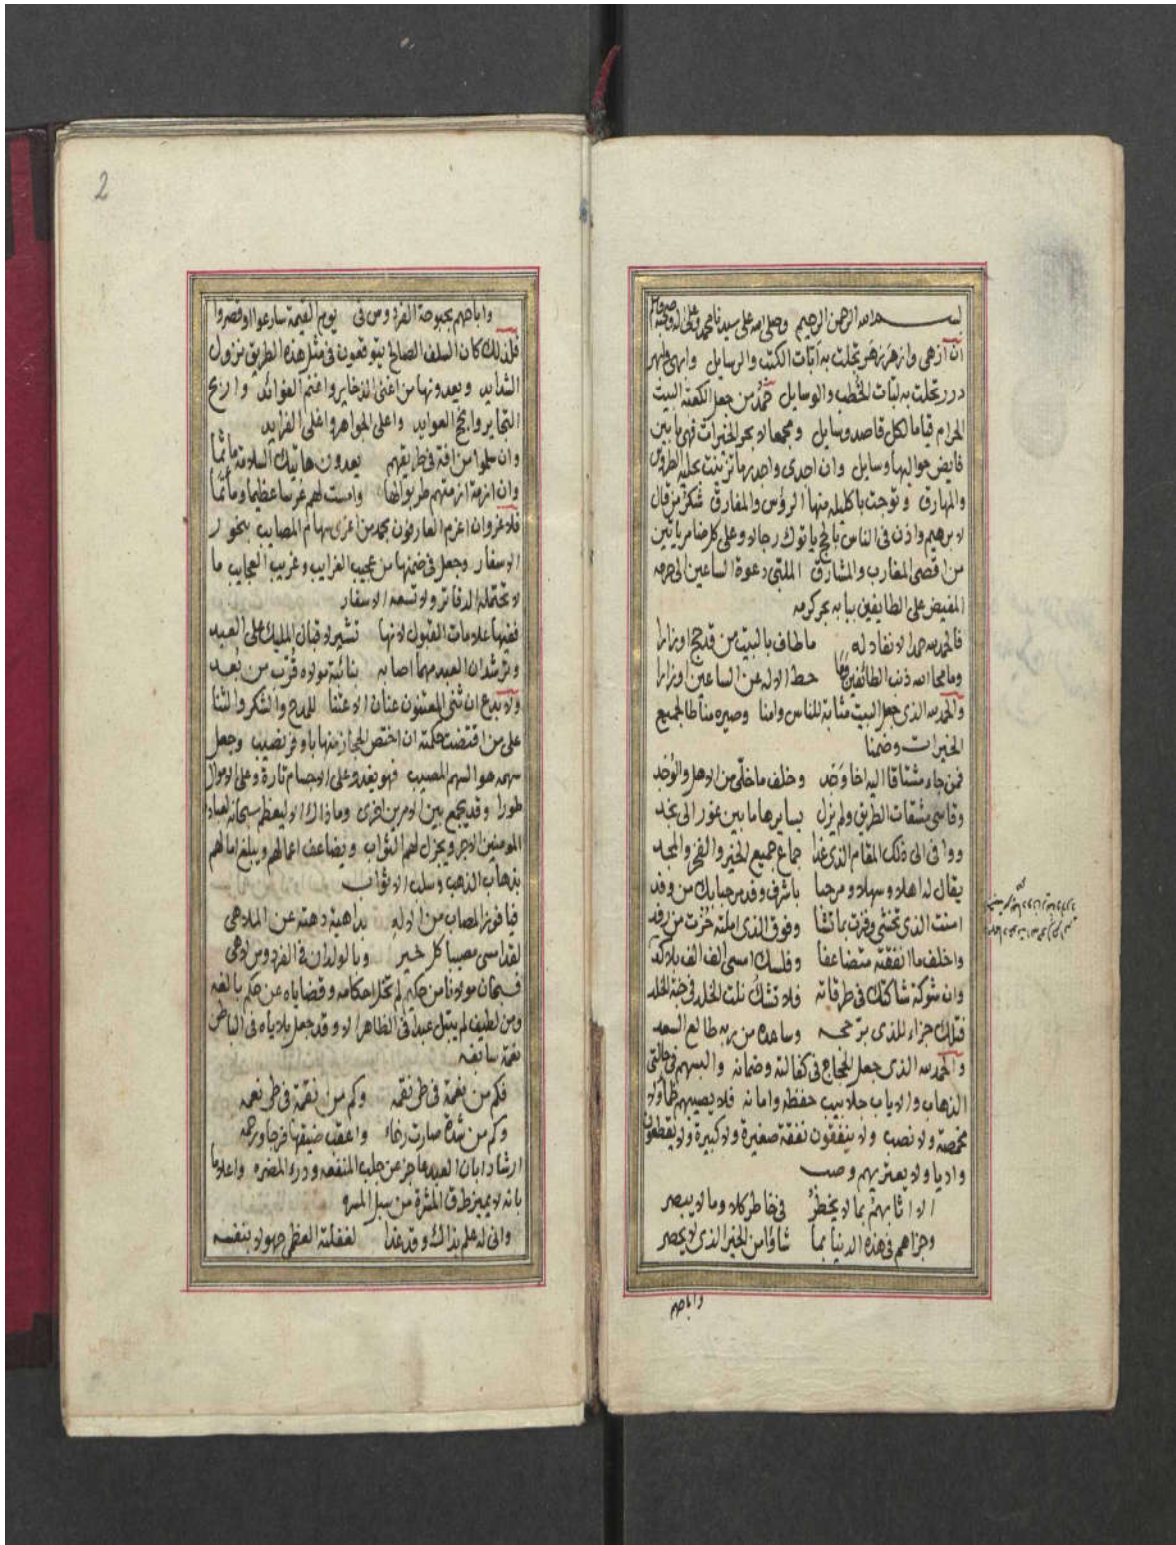 بسم الله الرحمن الرحيم وصلى الله على سيدنا محمد وعلى اله وصحبه
ان ازهى وازهر زهر تحلت به اثبات الكتب والرسايل وابهى وابهر
درر تحلت به لبات الخطب والوسايل حمد من جعل الكعبة البيت
الحرام قياما لكل قاصد وسايل ومجمعا لابحر الخيرات فهي ما بين
فايض حواليها وسايل وان احدى واحد رها تزينت بحليه الطروس
والمهارق وتوجت باكليله منها الرؤس والمفارق شكر من قال
لابرهيم واذن فى الناس بالحج ياتوك رجالا وعلى كل ضامر ياتين
من اقصى المغارب والمشارق الملبى دعوة الساعين الى حرمه
المفيض على الطايفين ببابه بحر كرمه
فالحمد لله حمدا لا نفاد له ما طاف بالبيت من قد حج او زارا
وما محا الله ذنب الطائفين وما حط الاله عن الساعين اوزارا
والحمد لله الذى جعل البيت مثابة للناس وامنا وصيره مناطا لجميع
الخيرات وضمنا
فمن جاء مشتاقا اليه اخا وجد وخلف ما خلى من الاهل والوجد
وقاسى مشقات الطريق ولم يزل يسايرها ما بين غور الى نجد
ووافى الى ذلك المقام الذى غدا جماع جميع الخير والفخر والمجد
يقال له اهلا وسهلا ومرحبا باشرف وفد مرحبا بك من وفد
امنت الذى تخشى وفزت بما تشا وفوق الذى املته حزت من رفد
واخلف ما انفقته متضاعفا وفلسك امسى الف الف بلا كد
وان شوكة شاكتك فى طرقاته فلا تشك نلت الخلد فى جنة الخلد
فتلك جزاء للذى بر حجه وساعده من ربه طالع السعد
والحمد لله الذى جعل الحجاج فى كفالته وضمانه والبسهم فى حالتى
الذهاب والاياب جلابيب حفظه وامانه فلا يصيبهم ظما ولا
مخمصة ولا نصب ولا ينفقون نفقة صغيرة ولا كبيرة ولا يقطعون
واديا ولا يعتريهم وصب
الا اثابهم بما لا يخطر فى خاطر كلا وما لا يبصر
وجزاهم فى هذه الدنيا بما شاؤا من الخير الذى لا يحصر
واباحهم
2
واباحهم بحبوحة الفردوس فى يوم القيمة سارعوا او قصروا
فلذلك كان السلف الصالح يتوقعون فى مثل هذه الطريق نزول
الشدايد ويعدونها من اغنى الذخاير واغنم الفوائد واربح
التجاير وانجح العوايد واعلى الجواهر واغلى الفرايد
وان سلموا من افة فى طريقهم يعدون هاتيك السلامة ماثما
وان ازمة ازمتهم طربوا لها وامست لهم عرسا عظيما وماتما
فلا غرو ان اعزم العارفون بحمد من اغرى سهام المصايب بنحور
الاسفار وجعل فى ضمنها من عجيب الغرايب وغريب العجايب ما
لا تحتمله الدفاتر ولا تسعه الاسفار
ففيها علامات القبول لانها تشير لاقبال المليك على العبد
وترشد ان العبد مهما اصابه بنائبة مولاه قرب من بعد
ولا بدع ان ثنى المعتنون عنان الاعتنا للمدح والشكر والثنا
على من اقتضت حكمته ان اختص الحجاز منها باوفر نصيب وجعل
سهمه هو السهم المصيب فهو يغدو على الاجسام تارة وعلى الاموال
طورا وقد يجمع بين الامرين اخرى وما ذاك الا ليعظم سبحانه لعباده
المومنين الاجر ويجزل لهم الثواب ويضاعف اعمالهم ويبلغ امالهم
بذهاب الذهب وسلب الاثواب
فيا فوز المصاب من الاله بداهية دهته عن الملاهى
لقد امسى مصيبا كل خير وبالولدان فى الفردوس لاهى
فسبحان مولانا من حكيم لم تخل احكامه وقضاياه عن حكم بالغه
ومن لطيف لم يبتل عبدا فى الظاهر الا وقد جعل بلاياه فى الباطن
نعمة سابغه
فكم من نعمة فى طى نقمه وكم من نقمة فى طى نعمه
وكم من شدة صارت رخاء واعقب ضيقها فرجا ورحمه
ارشادا بان العبد عاجز عن جلب المنفعه ودرء المضره واعلاما
بانه لا يميز طرق المضرة من سبل المسره
وانى له علم بذاك وقد غدا لغفلته العظمى جهولا بنفسه